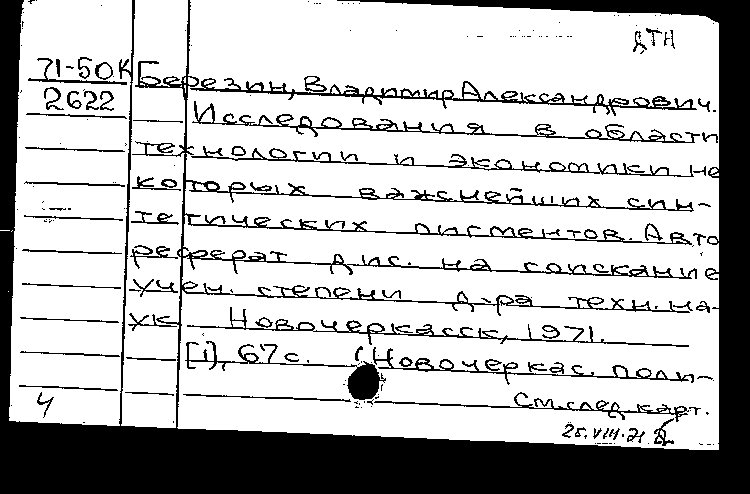 ДТН
71-50К Березин, Владимир Александрович.
2622 Исследования в области
технологии и экономики не
которых важнейших син-
тетических пигментов. Авто
реферат дис. на соискание
учен. степени д-ра техн. на-
ук Новочеркасск, 1971.
[1], 67 с. (Новочеркас. поли-
См. след. карт.
4